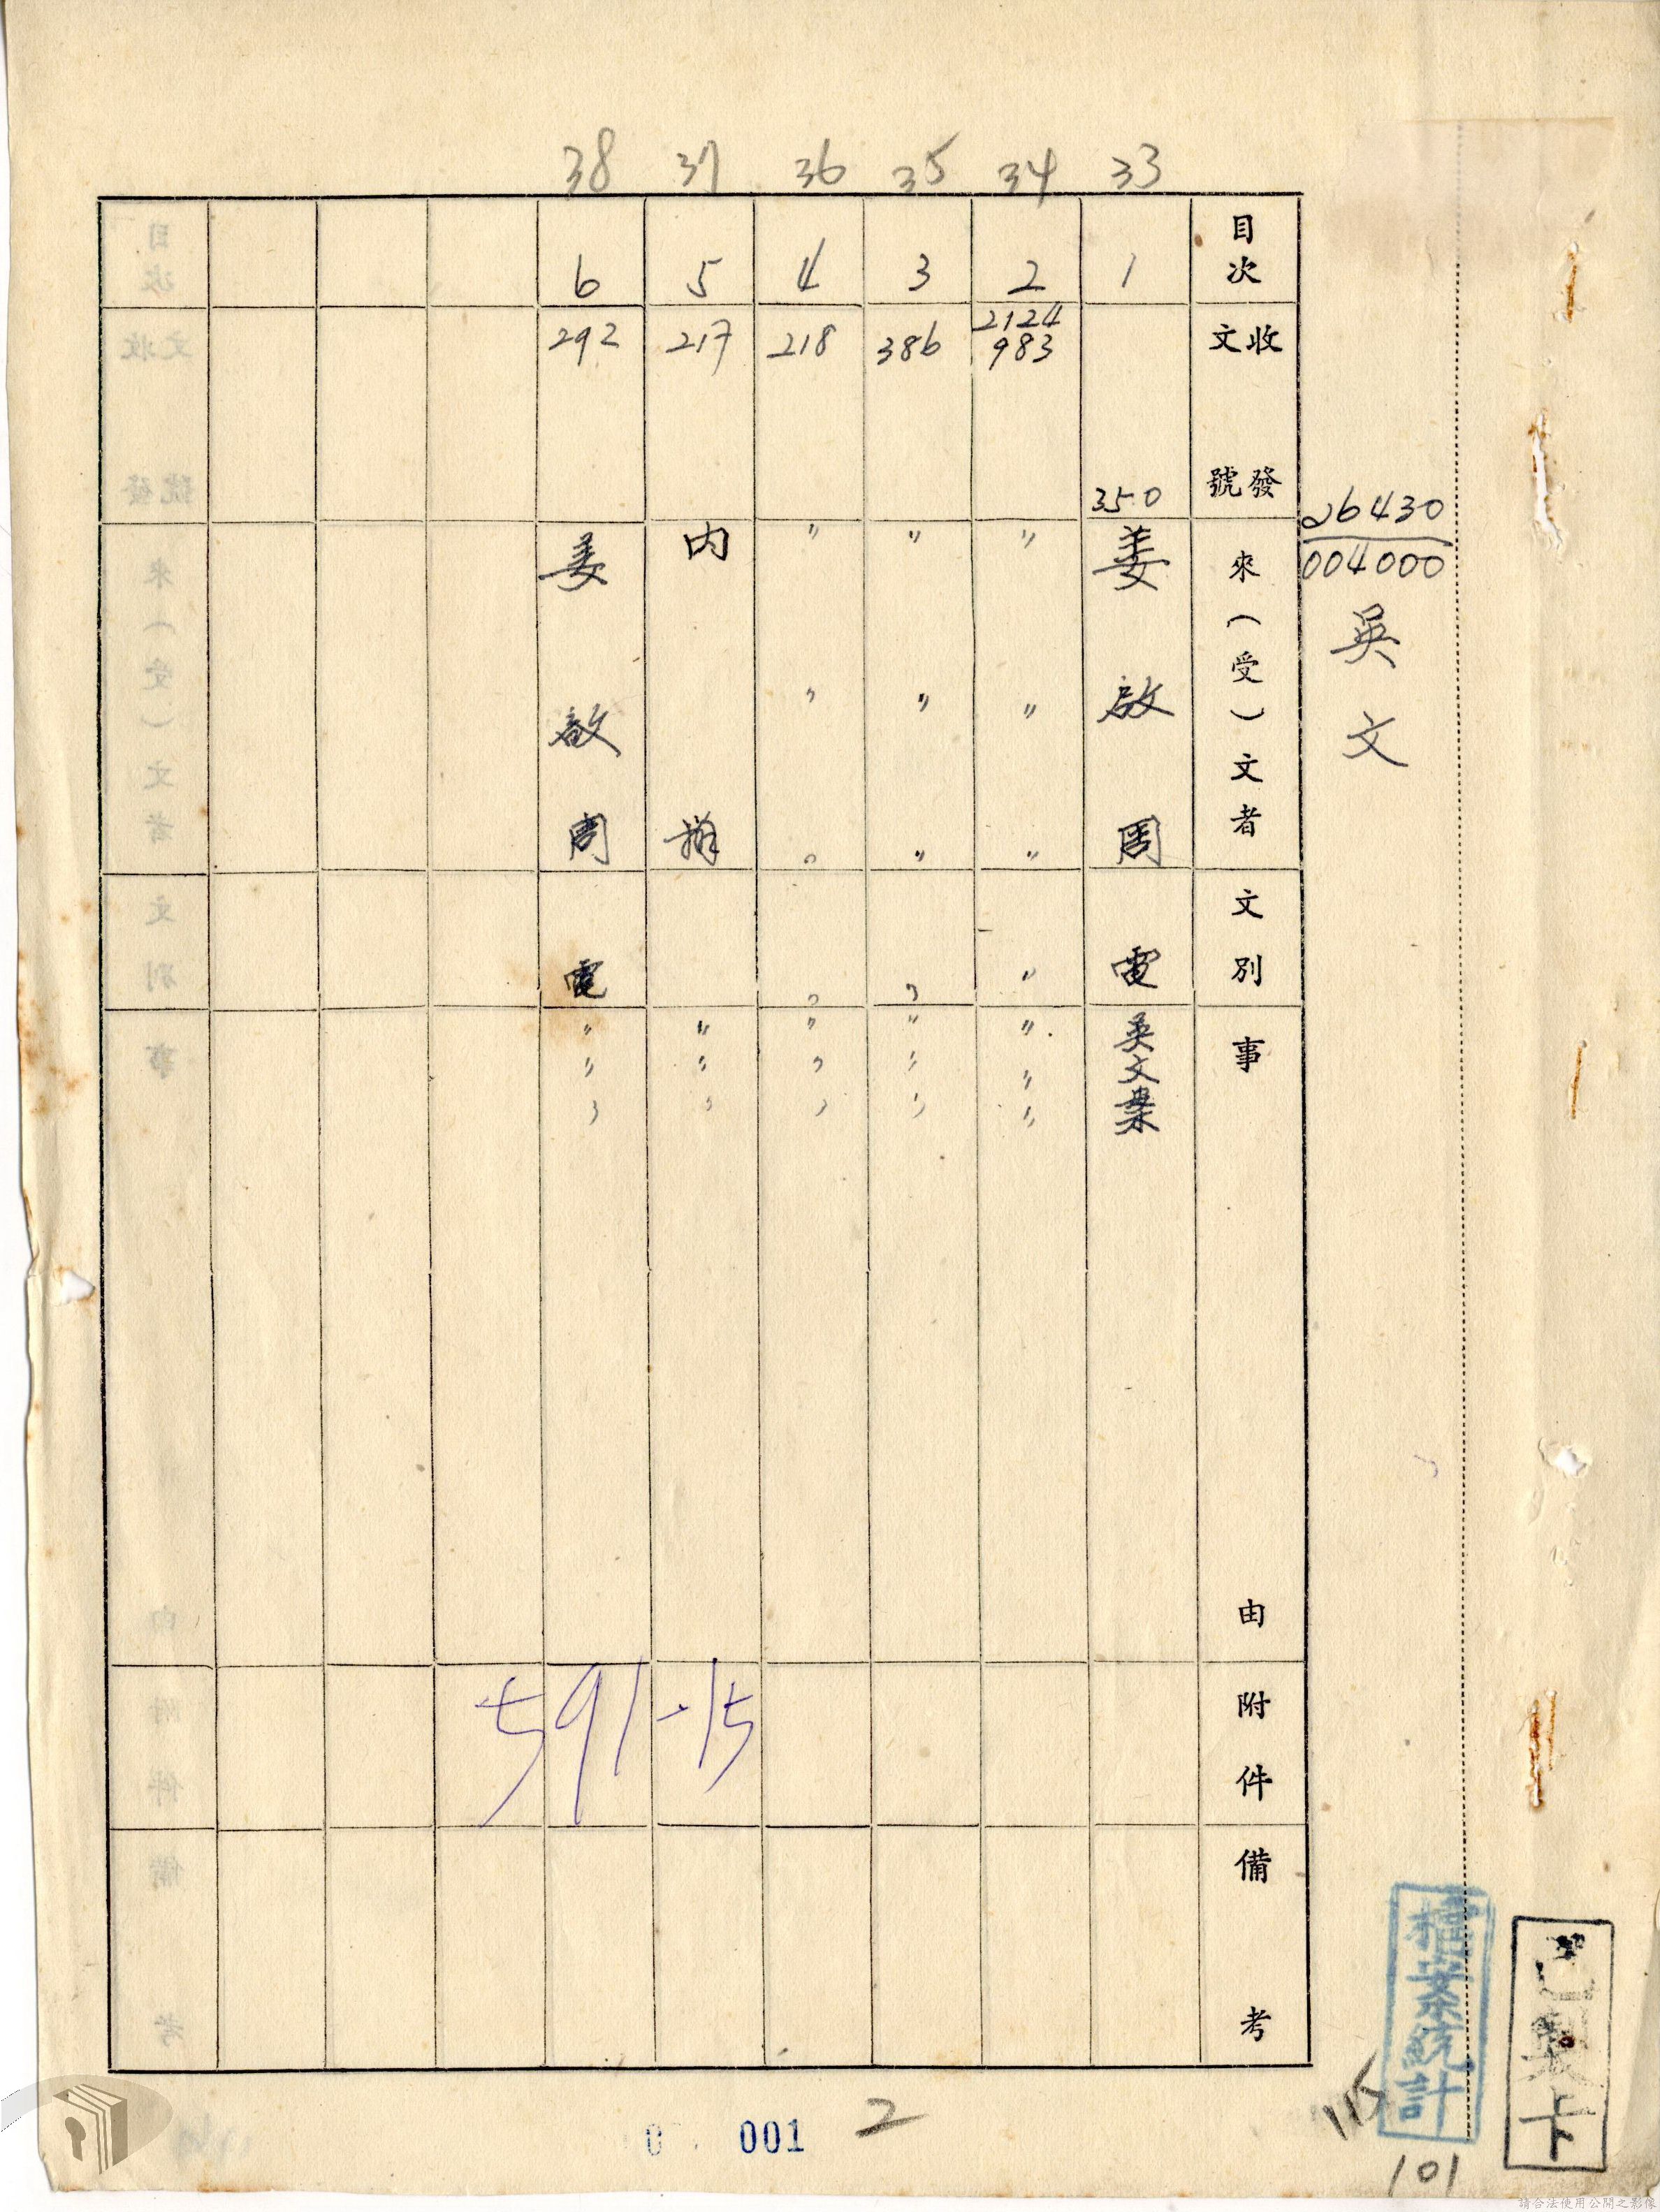 33 34 35 36 37 38
目次
收文
發號
來(受)文者
文別
事由
附件
備考
1
350
姜啟周
電
吳文案
2
2124
983
〃〃〃
〃
〃〃〃
3
386
〃〃〃
〃
〃〃〃
4
218
〃〃〃
〃
〃〃〃
5
217
内
〃〃〃
6
292
姜啟周
電
〃〃〃
26430
004000
吳文
591-15
檔案統計
已製卡
115
101
001
2
請合法使用公開之影像